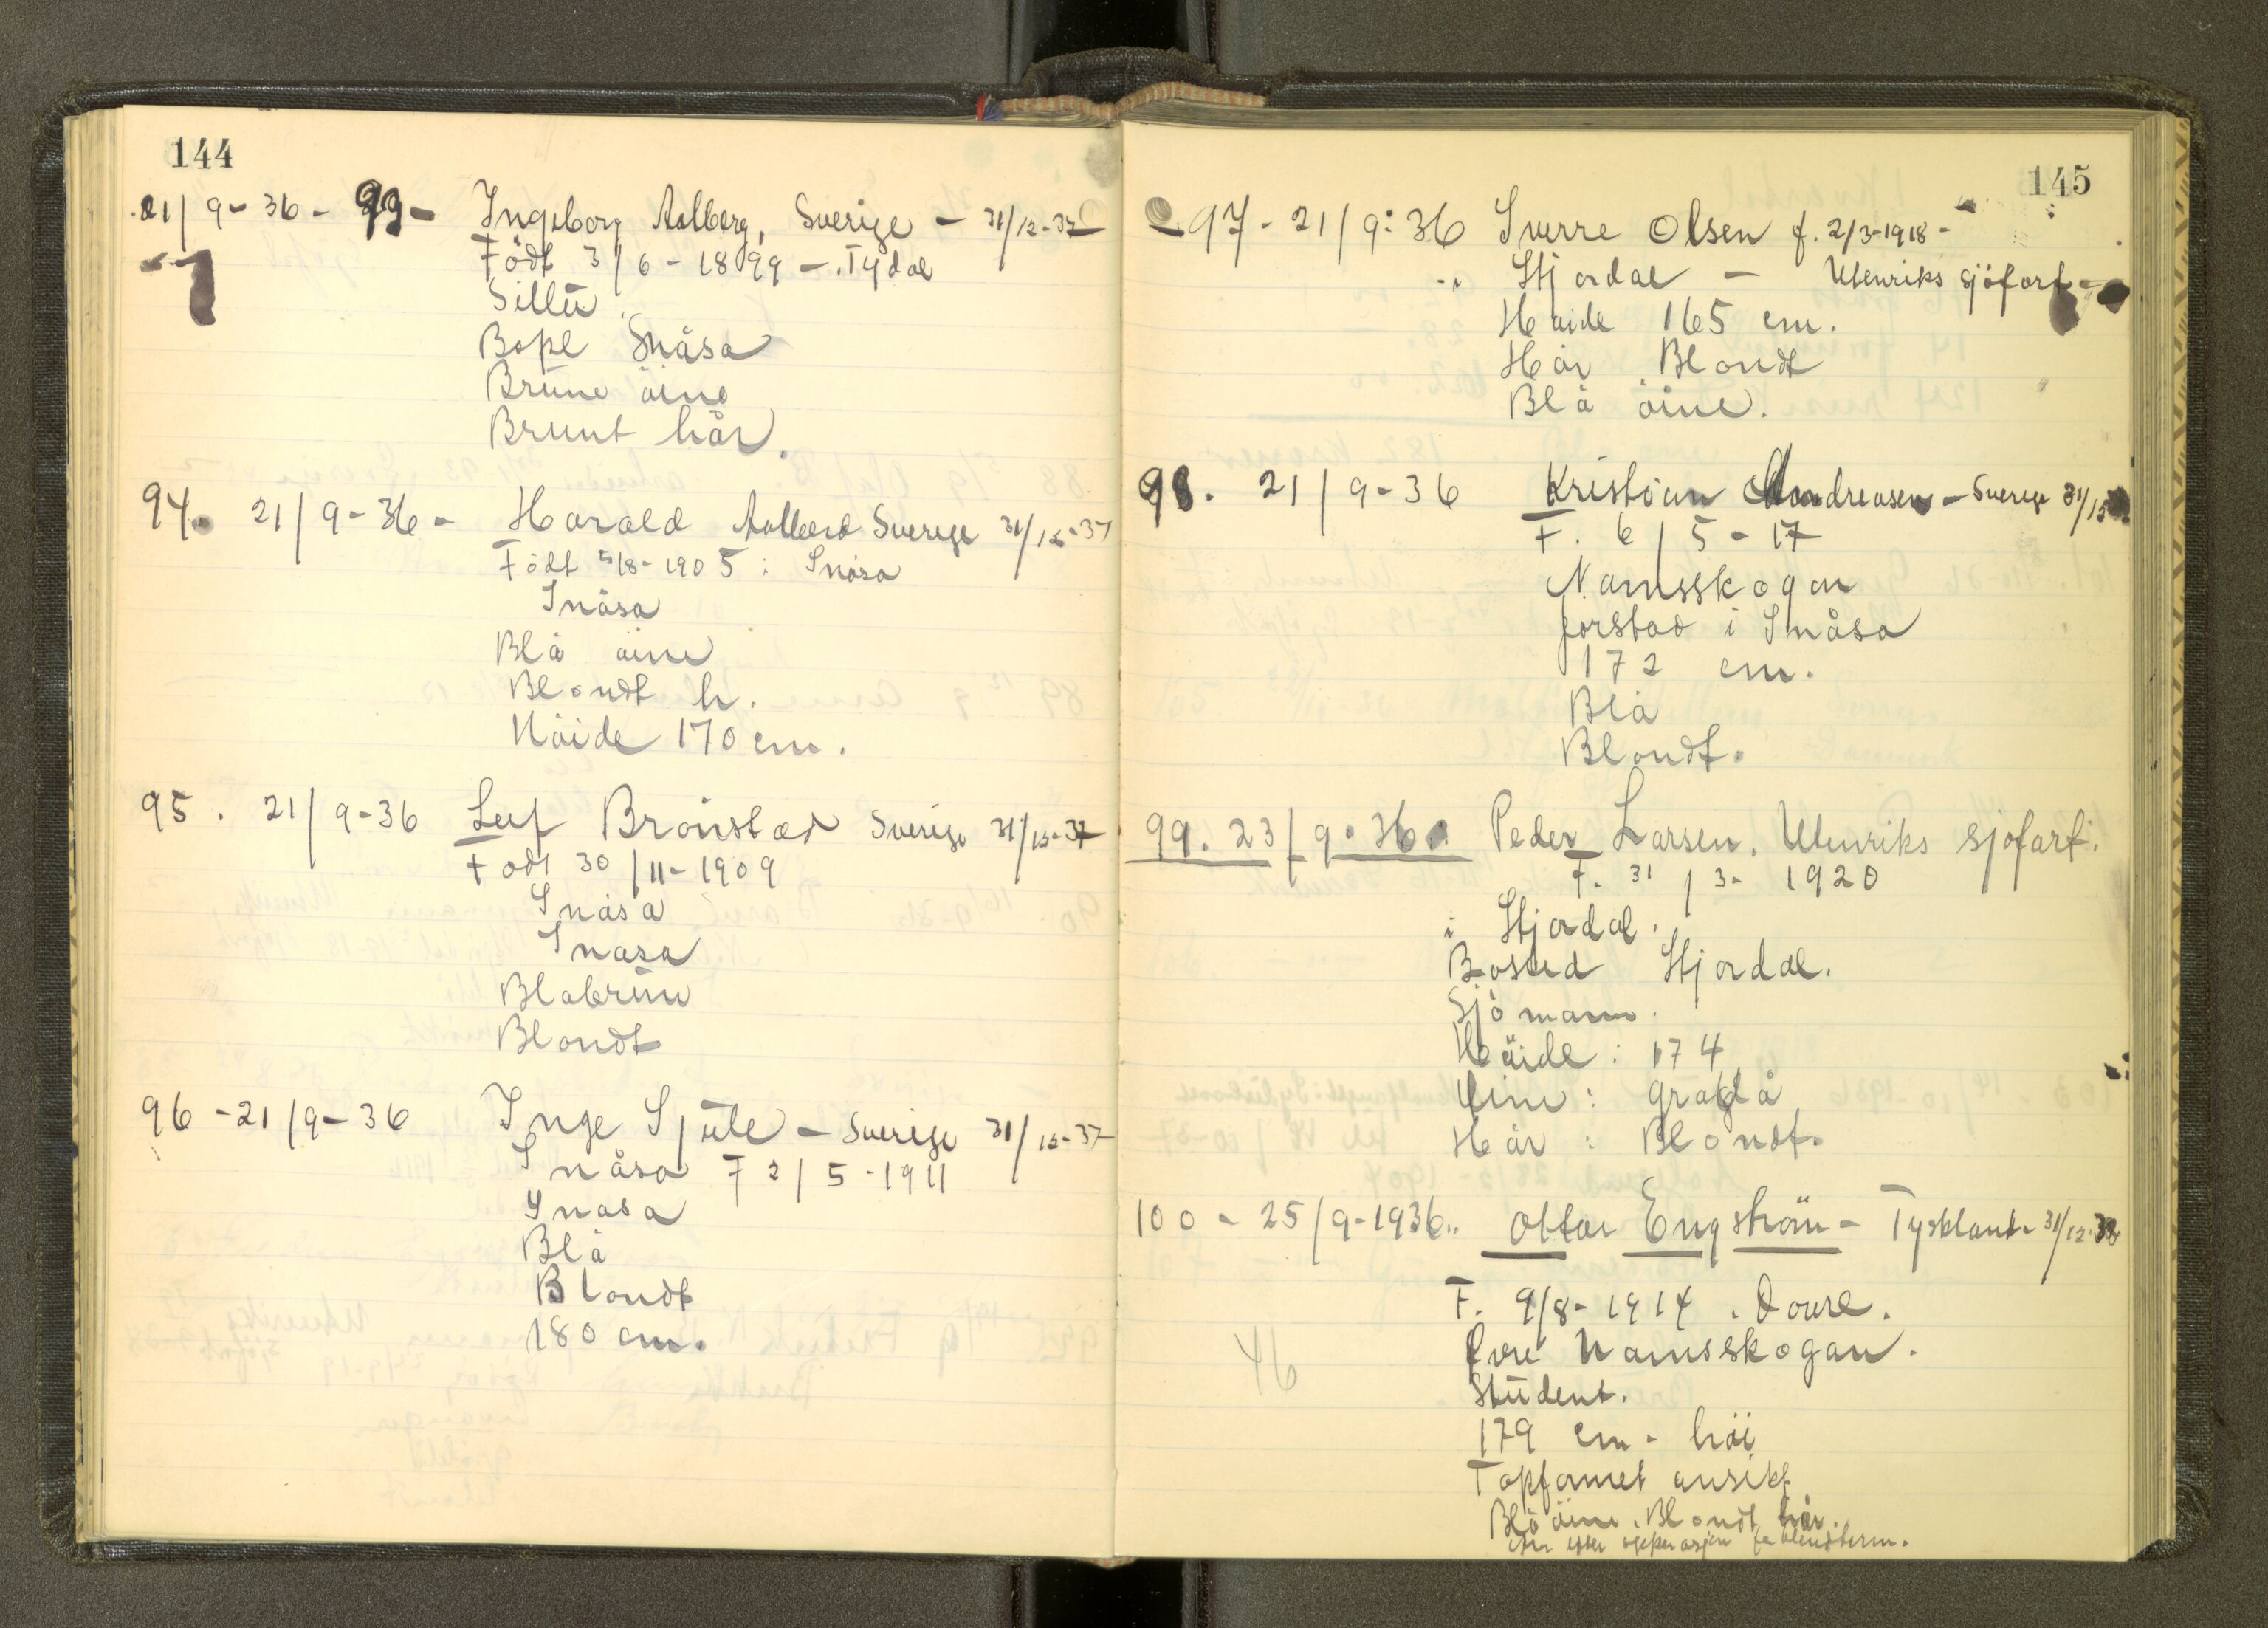 144
21/9-36- 93-
Ingeborg Aalberg, Sverige - 31/12-37
Född 3/6-1899 - i Tydal
Bopl Snåsa
Brune öine
Brunt hår.
94. 21/9-36- Harald Aalberg Sverige 31/12-37
Födt 5/8-1905 i Snåsa
Snåsa
Blå öine
Blondt h.
Höide 170 cm.
95. 21/9-36 Leif Brönstad Sverige 31/12-37
Födt 30/11-1909
Snåsa
Snasa
Blabrun
Blondt
96-21/9-36 Inge Sjule - Sverige 31/12-37
Snåsa F 2/5-1911
Snasa
Blå
Blondt
180 cm.
145
97-21/9:36 Sverre Olsen f. 2/3-1918-
i Stjordal - Utenriks sjöfart-
Höide 165 cm.
Hår Blondt
Blå öine.
98. 21/9-36 Kristian Andreasen - Sverige 31/12
F. 6/5-17
Namsskogan
Jorstad i Snåsa
172 cm.
Blå
Blondt.
99. 23/9.36. Peder Larsen. Utenriks sjöfart.
F. 31/3-1920
i Stjordal.
Bosted Stjordal.
Sjömann.
Höide: 174
Öine: gråblå
Hår: Blondt.
100-25/9-1936.. Ottar Engström - Tyskland 31/12-38
F. 9/8-1914 i Dovre.
46
Øvre Namsskogan.
Student.
179 cm- höi
Blå öine. Blondt hår.
Arr etter opperasjon for blendterm.